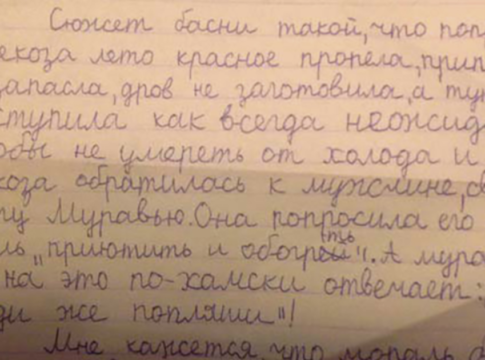 Сюжет басни такой, что поп
екоза лето красное пропела, прип
запасла, дров не заготовила, а ту
ступила как всегда неожид
обы не умереть от холода и
коза обратилась к мужчине, св
ту Муравью. Она попросила его
ль „приютить и обогреть". А мура
на это по-хамски отвечает:
ди же попляши"!
Мне кажется, что мораль